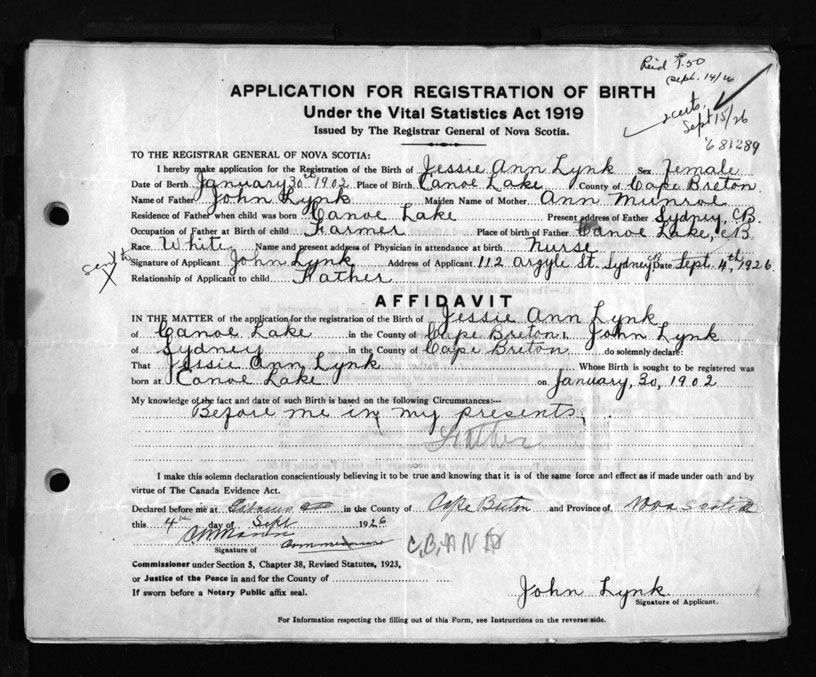 Rec'd $1.50
Sept. 14/26
2 certs.
Sept 15/26
681289
APPLICATION FOR REGISTRATION OF BIRTH
Under the Vital Statistics Act 1919
Issued by The Registrar General of Nova Scotia.
TO THE REGISTRAR GENERAL OF NOVA SCOTIA:
I hereby make application for the Registration of the Birth of Jessie Ann Lynk Sex Female
Date of Birth January 30th 1902 Place of Birth Canoe Lake County of Cape Breton
Name of Father John Lynk Maiden Name of Mother Ann Munroe
Residence of Father when child was born Canoe Lake Present address of Father Sydney, CB.
Occupation of Father at Birth of child Farmer Place of birth of Father Canoe Lake, CB
Race White Name and present address of Physician in attendance at birth Nurse
Signature of Applicant John Lynk Address of Applicant 112 Argyle St. Sydney Date Sept 4th, 1926
Relationship of Applicant to child Father
AFFIDAVIT
IN THE MATTER of the application for the registration of the Birth of Jessie Ann Lynk
of Canoe Lake in the County of Cape Breton I, John Lynk
of Sydney in the County of Cape Breton do solemnly declare:
That Jessie Ann Lynk Whose Birth is sought to be registered was
born at Canoe Lake on January, 30, 1902
My knowledge of the fact and date of such Birth is based on the following Circumstances:—
Before me in my presents,
Father
I make this solemn declaration conscientiously believing it to be true and knowing that it is of the same force and effect as if made under oath and by
virtue of The Canada Evidence Act.
Declared before me at in the County of Cape Breton and Province of Nova Scotia
this 4th day of Sept 1926
Signature of Commissioner
Commissioner under Section 5, Chapter 38, Revised Statutes, 1923,
or Justice of the Peace in and for the County of
If sworn before a Notary Public affix seal.
John Lynk
Signature of Applicant.
For Information respecting the filling out of this Form, see Instructions on the reverse side.